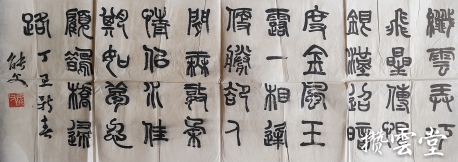 纖雲弄巧
飛星傳恨
銀漢迢暗
度金風玉
露一相逢
便勝卻人
間無數柔
情似水佳
期如夢忍
顧鵲橋歸
路
丁丑新春
雲堂